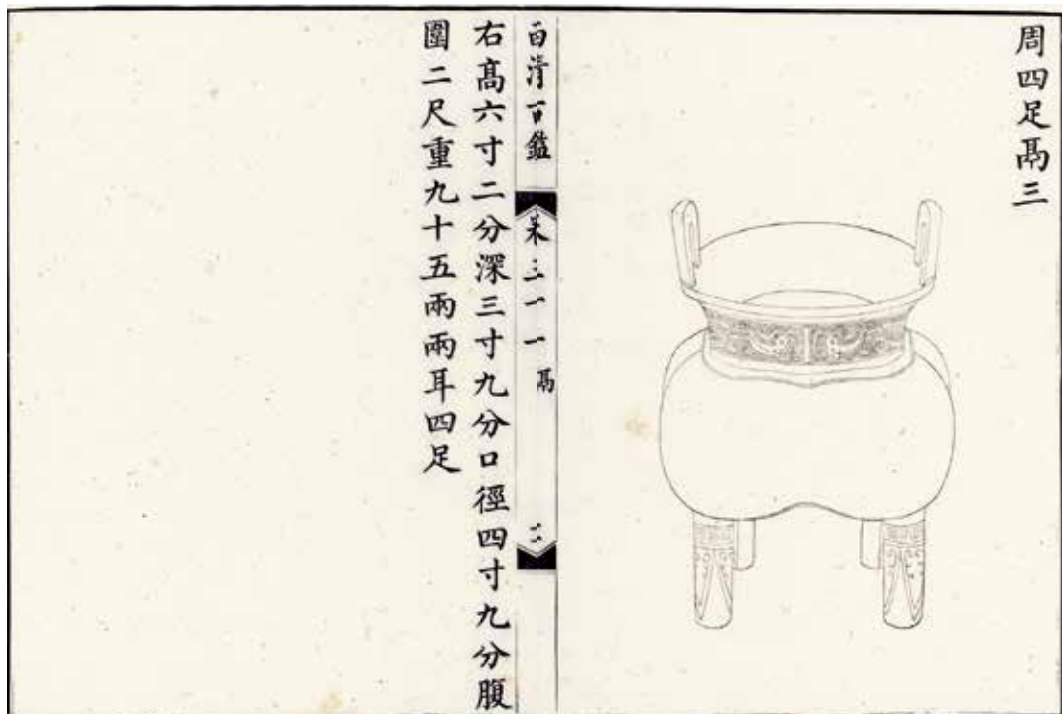 周四足鬲三
西清古鑑
卷三十一 鬲
右高六寸二分深三寸九分口徑四寸九分腹
圍二尺重九十五兩兩耳四足